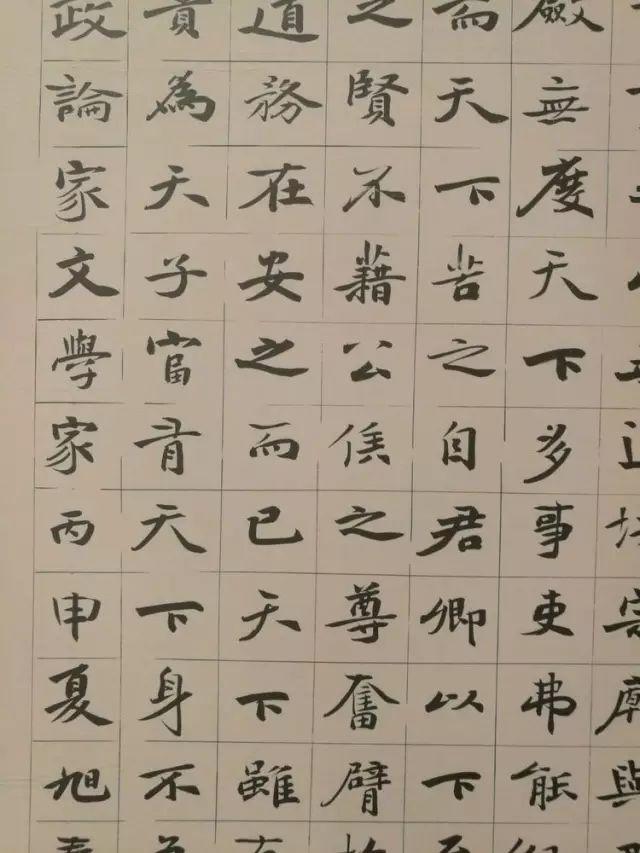 宗廟與
斂無度天下多事吏弗能
而天下苦之自君卿以下至
之賢不藉公侯之尊奮臂於
道務在安之而已天下雖有
貴為天子富有天下身不
政論家文學家丙申夏旭